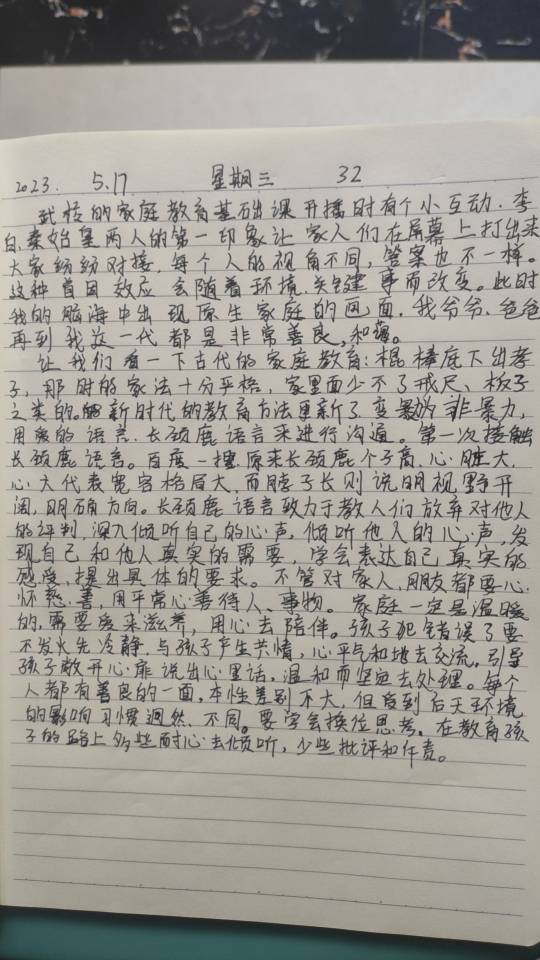 2023. 5.17 星期三 32
武校的家庭教育基础课开播时有个小互动.李
白.秦始皇两人的第一印象让家人们在屏幕上打出来
大家纷纷对接.每个人的视角不同,答案也不一样。
这种首因效应会随着环境.关键事而改变。此时
我的脑海中出现原生家庭的画面.我爷爷、爸爸
再到我这一代都是非常善良,和蔼。
让我们看一下古代的家庭教育:棍棒底下出孝
子,那时的家法十分严格,家里面少不了戒尺、板子
之类的。新时代的教育方法更新了变暴为非暴力,
用爱的语言.长颈鹿语言来进行沟通。第一次接触
长颈鹿语言。百度一搜,原来长颈鹿个子高.心脏大.
心大代表宽容格局大,而脖子长则说明视野开
阔,明确方向。长颈鹿语言致力于教人们放弃对他人
的评判,深入倾听自己的心声,倾听他人的心声,发
现自己和他人真实的需要,学会表达自己真实的
感受,提出具体的要求。不管对家人.朋友都要心
怀慈善,用平常心善待人、事物。家庭一定是温暖
的,需要爱来滋养,用心去陪伴。孩子犯错误了要
不发火先冷静.与孩子产生共情,心平气和地去交流.引导
孩子敞开心扉说出心里话,温和而坚定去处理。每个
人都有善良的一面,本性差别不大,但受到后天环境
的影响习惯迥然.不同。要学会换位思考。在教育孩
子的路上多些耐心去倾听,少些批评和斥责。